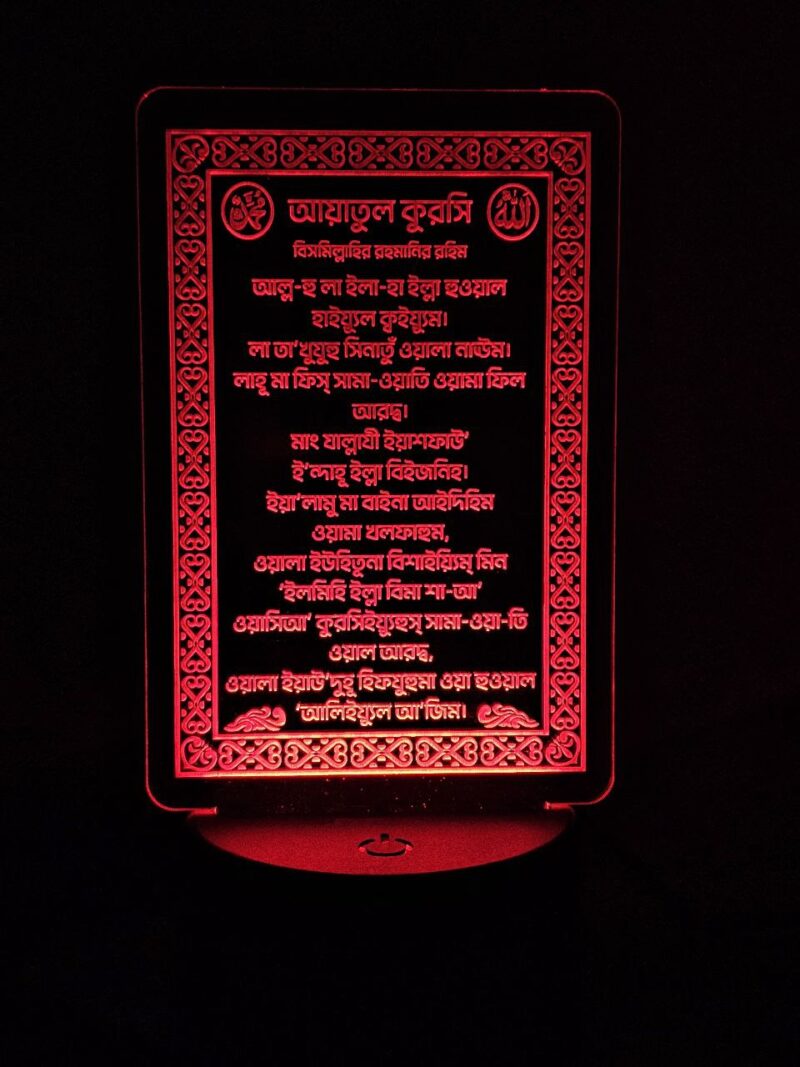 محمد
আয়াতুল কুরসি
الله
বিসমিল্লাহির রহমানির রহিম
আল্ল-হু লা ইলা-হা ইল্লা হুওয়াল
হাইয়্যুল ক্বইয়্যুম।
লা তা’খুযুহু সিনাতুঁ ওয়ালা নাঊম।
লাহূ মা ফিস্ সামা-ওয়াতি ওয়ামা ফিল
আরদ্ব।
মাং যাল্লাযী ইয়াশফাউ’
ই’ন্দাহূ ইল্লা বিইজনিহ।
ইয়া’লামু মা বাইনা আইদিহিম
ওয়ামা খলফাহুম,
ওয়ালা ইউহিতূনা বিশাইয়্যিম্ মিন
‘ইলমিহি ইল্লা বিমা শা-আ’
ওয়াসিআ’ কুরসিইয়্যুহুস্ সামা-ওয়া-তি
ওয়াল আরদ্ব,
ওয়ালা ইয়াউ’দুহূ হিফযুহুমা ওয়া হুওয়াল
‘আলিইয়্যুল আ’জিম।